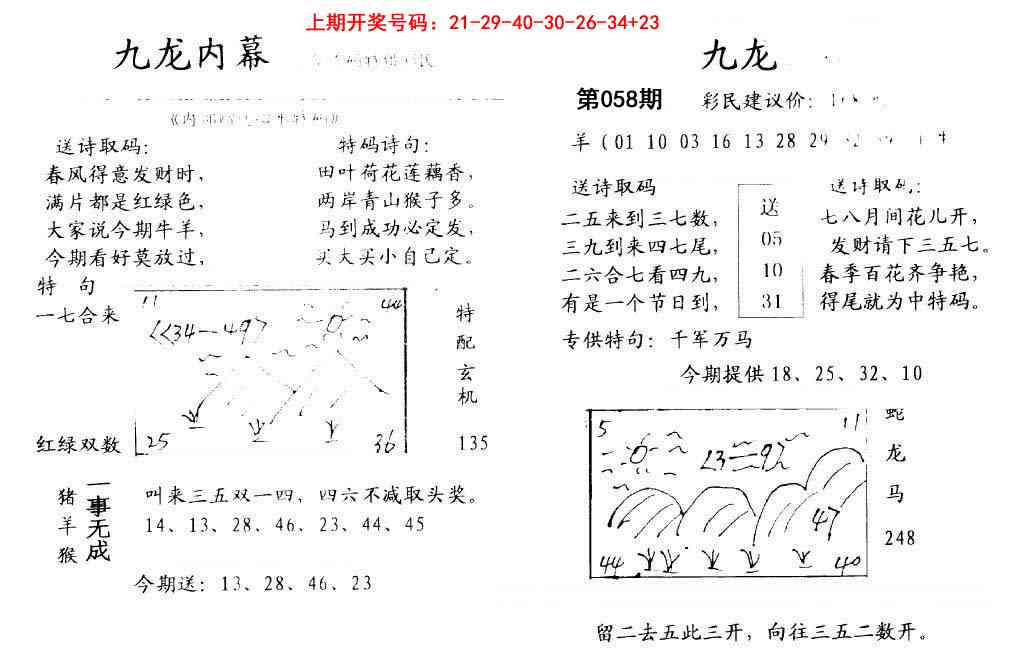 上期开奖号码：21-29-40-30-26-34+23
九龙内幕
送诗取码：
春风得意发财时，
满片都是红绿色，
大家说今期牛羊，
今期看好莫放过，
特码诗句：
田叶荷花莲藕香，
两岸青山猴子多。
马到成功必定发，
买大买小自己定。
特 句
一七合来
红绿双数
11
44
34—49
25
36
特
配
玄
机
135
猪
羊
猴
一事无成
叫来三五双一四，四六不减取头奖。
14、13、28、46、23、44、45
今期送：13、28、46、23
九龙
第058期
彩民建议价：
羊（01 10 03 16 13 28 29
送诗取码
二五来到三七数，
三九到来四七尾，
二六合七看四九，
有是一个节日到，
送
05
10
31
送诗取码：
七八月间花儿开，
发财请下三五七。
春季百花齐争艳，
得尾就为中特码。
专供特句：千军万马
今期提供 18、25、32、10
5
11
47
44
40
蛇
龙
马
248
留二去五此三开，向往三五二数开。